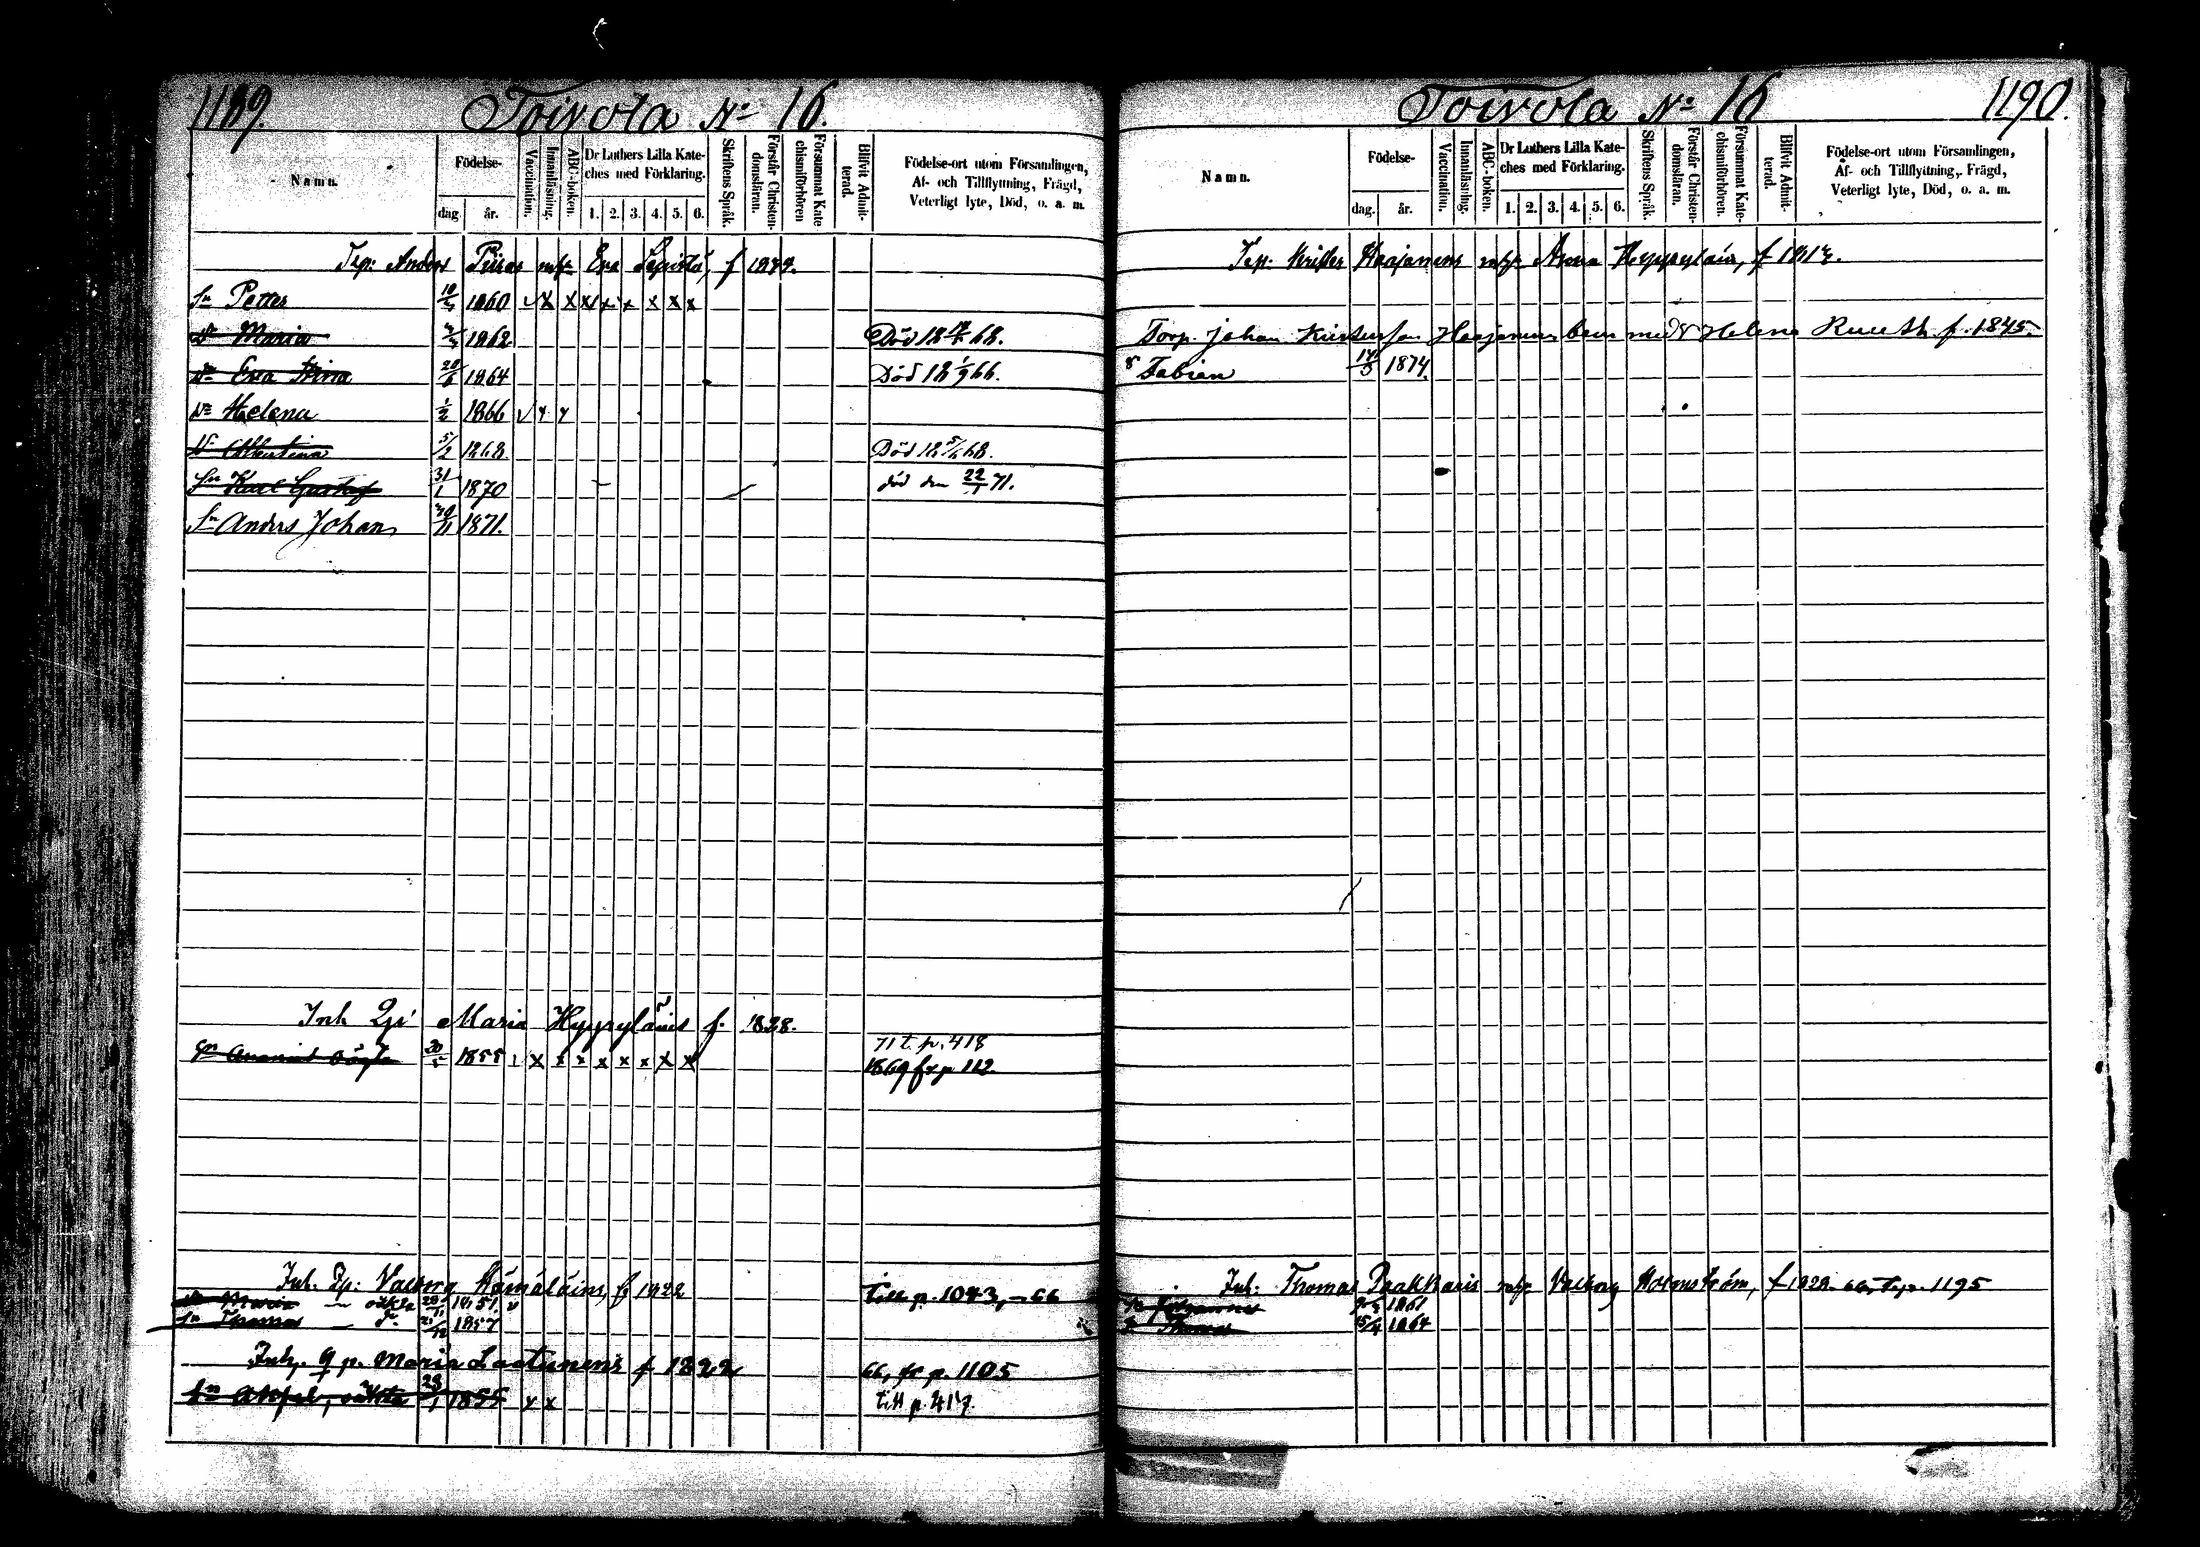 1189. Toivola No 16.
Namn. Födelse- dag. år. Vaccination. Innanläsning. ABC-boken. Dr Luthers Lilla Kateches med Förklaring. 1. 2. 3. 4. 5. 6. Skriftens Språk. Förstår Christendomsläran. Försummat Katechismiförhören Blifvit Admitterad. Födelse-ort utom Församlingen, Af- och Tillflyttning, Frägd, Veterligt lyte, Död, o. a. m.
Tsp: Anders Piiras m/h Eva f
Sn Petter 1860 x x x x x x x x
Dr Maria 1862 Död
Dr Eva Stina 20/6 1864 Död 18 1/9 66.
Dr Helena 1/2 1866
Dr Albertina 5/2 1868 Död
Sn Karl Gustaf 31/1 1870 död den 22/1 71.
Sn Anders Johan 30/11 1871.
Inh Maria Hyypyläinen f. 1828.
71 t. p. 418
Sn oägta 1855 x x x x x x x x 1869 fr p 112
Inh. Valborg Hämäläinen, f 1822
Dr Maria oäkta 1851 Till p. 1043, - 66
Sn Thomas do 1857
Inh. q p. Maria Laatunen f 1822 66, fr p. 1105
Sn oäkta 23/1 1855 x x till p. 417.
Toivola No 16 1190.
Namn. Födelse- dag. år. Vaccination. Innanläsning. ABC-boken. Dr Luthers Lilla Kateches med Förklaring. 1. 2. 3. 4. 5. 6. Skriftens Språk. Förstår Christendomsläran. Försummat Katechismiförhören. Blifvit Admitterad. Födelse-ort utom Församlingen, Af- och Tillflyttning, Frägd, Veterligt lyte, Död, o. a. m.
Tsp: Krister Haajanens m/h Anna Hyypyläin, f
Torp. Johan Haajanens barn med Helena f. 1845.
S Fabian 1874.
Inh: Thomas Paakkaris m/h Valborg Holmström, f 1828. 66, t. p. 1195
Sn Johannes 1861
Sn Thomas 15/4 1864